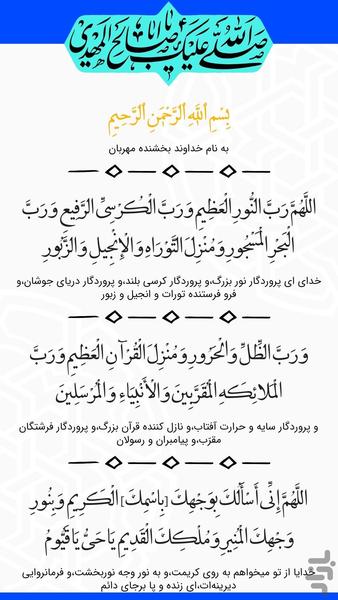 صلی الله علیک یا اباصالح المهدی
بِسْمِ اللَّهِ الرَّحْمَنِ الرَّحِيمِ
به نام خداوند بخشنده مهربان
اللَّهُمَّ رَبَّ النُّورِ الْعَظِيمِ وَ رَبَّ الْكُرْسِيِّ الرَّفِيعِ وَ رَبَّ
الْبَحْرِ الْمَسْجُورِ وَ مُنْزِلَ التَّوْرَاةِ وَ الْإِنْجِيلِ وَ الزَّبُورِ
خدای ای پروردگار نور بزرگ،و پروردگار کرسی بلند،و پروردگار دریای جوشان،و
فرو فرستنده تورات و انجیل و زبور
وَ رَبَّ الظِّلِّ وَ الْحَرُورِ وَ مُنْزِلَ الْقُرْآنِ الْعَظِيمِ وَ رَبَّ
الْمَلائِكَةِ الْمُقَرَّبِينَ وَ الْأَنْبِيَاءِ وَ الْمُرْسَلِينَ
و پروردگار سایه و حرارت آفتاب،و نازل کننده قرآن بزرگ،و پروردگار فرشتگان
مقرّب،و پیامبران و رسولان
اللَّهُمَّ إِنِّي أَسْأَلُكَ بِوَجْهِكَ [بِاسْمِكَ] الْكَرِيمِ وَ بِنُورِ
وَجْهِكَ الْمُنِيرِ وَ مُلْكِكَ الْقَدِيمِ يَا حَيُّ يَا قَيُّومُ
خدایا از تو میخواهم به روی کریمت،و به نور وجه نوربخشت،و فرمانروایی
دیرینه‌ات،ای زنده و پا برجای دائم
بازار